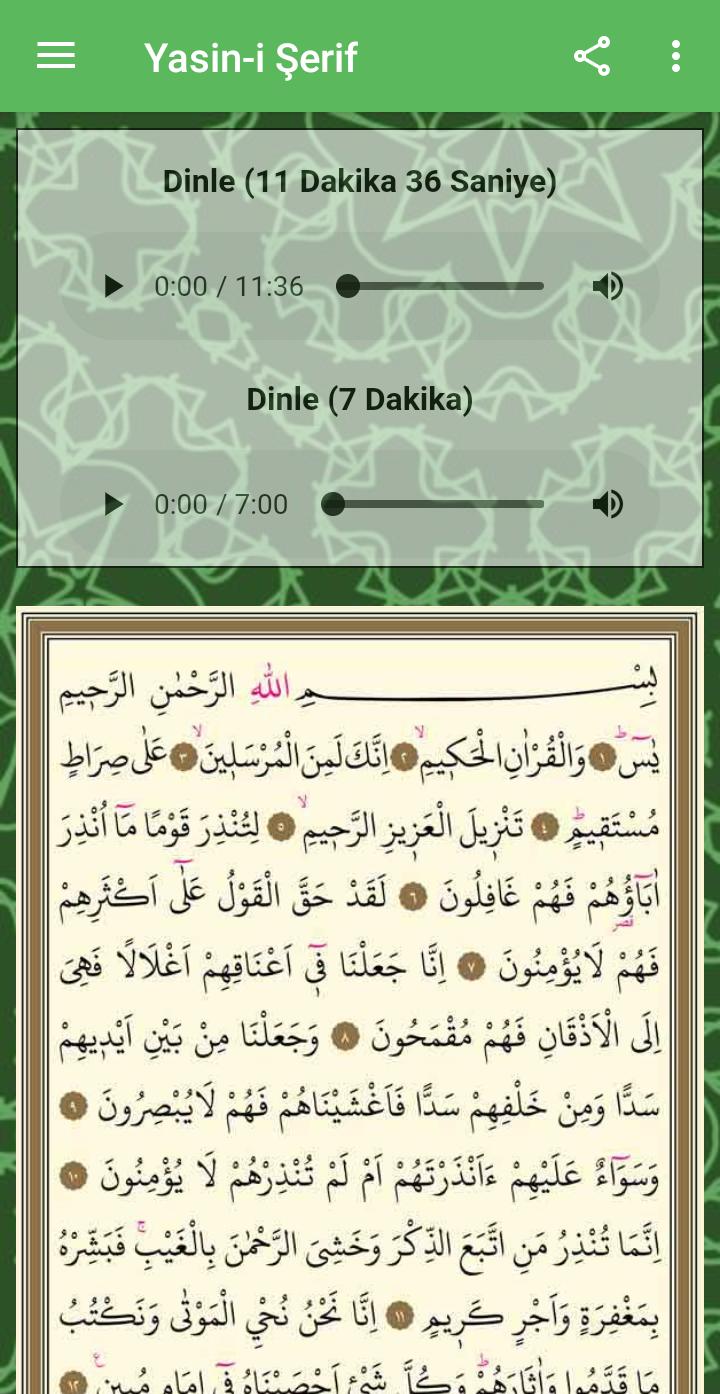 Yasin-i Şerif
Dinle (11 Dakika 36 Saniye)
0:00 / 11:36
Dinle (7 Dakika)
0:00 / 7:00
بِسْمِ اللّٰهِ الرَّحْمٰنِ الرَّحٖيمِ
يٰسٓ ۜ ﴿١﴾ وَالْقُرْاٰنِ الْحَكٖيمِ ۙ ﴿٢﴾ اِنَّكَ لَمِنَ الْمُرْسَلٖينَ ۙ ﴿٣﴾ عَلٰى صِرَاطٍ
مُسْتَقٖيمٍ ۜ ﴿٤﴾ تَنْزٖيلَ الْعَزٖيزِ الرَّحٖيمِ ۙ ﴿٥﴾ لِتُنْذِرَ قَوْمًا مَٓا اُنْذِرَ
اٰبَٓاؤُ۬هُمْ فَهُمْ غَافِلُونَ ﴿٦﴾ لَقَدْ حَقَّ الْقَوْلُ عَلٰٓى اَكْثَرِهِمْ
فَهُمْ لَا يُؤْمِنُونَ ﴿٧﴾ اِنَّا جَعَلْنَا فٖٓى اَعْنَاقِهِمْ اَغْلَالًا فَهِىَ
اِلَى الْاَذْقَانِ فَهُمْ مُقْمَحُونَ ﴿٨﴾ وَجَعَلْنَا مِنْ بَيْنِ اَيْدٖيهِمْ
سَدًّا وَمِنْ خَلْفِهِمْ سَدًّا فَاَغْشَيْنَاهُمْ فَهُمْ لَا يُبْصِرُونَ ﴿٩﴾
وَسَوَٓاءٌ عَلَيْهِمْ ءَاَنْذَرْتَهُمْ اَمْ لَمْ تُنْذِرْهُمْ لَا يُؤْمِنُونَ ﴿١٠﴾
اِنَّمَا تُنْذِرُ مَنِ اتَّبَعَ الذِّكْرَ وَخَشِىَ الرَّحْمٰنَ بِالْغَيْبِ ۚ فَبَشِّرْهُ
بِمَغْفِرَةٍ وَاَجْرٍ كَرٖيمٍ ﴿١١﴾ اِنَّا نَحْنُ نُحْيِ الْمَوْتٰى وَنَكْتُبُ
مَا قَدَّمُوا وَاٰثَارَهُمْ ۜ وَكُلَّ شَیْءٍ اَحْصَيْنَاهُ فٖٓى اِمَامٍ مُبٖينٍ ۟ ﴿١٢﴾